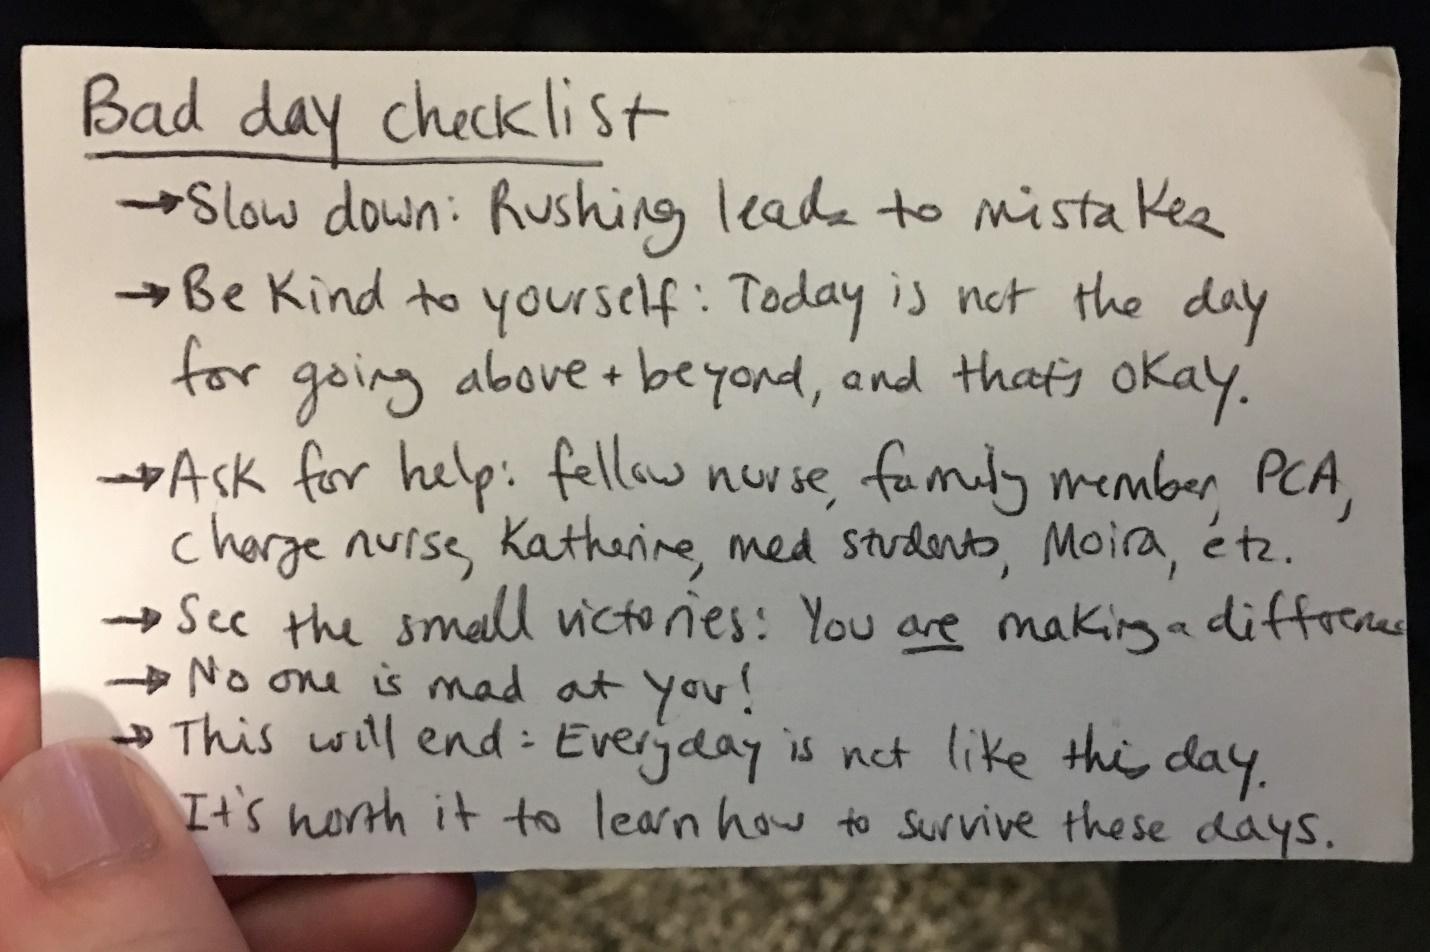 Bad day checklist
→ Slow down: Rushing leads to mistakes
→ Be Kind to yourself: Today is not the day
for going above + beyond, and that's okay.
→ Ask for help: fellow nurse, family member, PCA,
charge nurse, Katherine, med students, Moira, etc.
→ See the small victories: You are making a difference
→ No one is mad at you!
→ This will end: Everyday is not like this day.
It's worth it to learn how to survive these days.